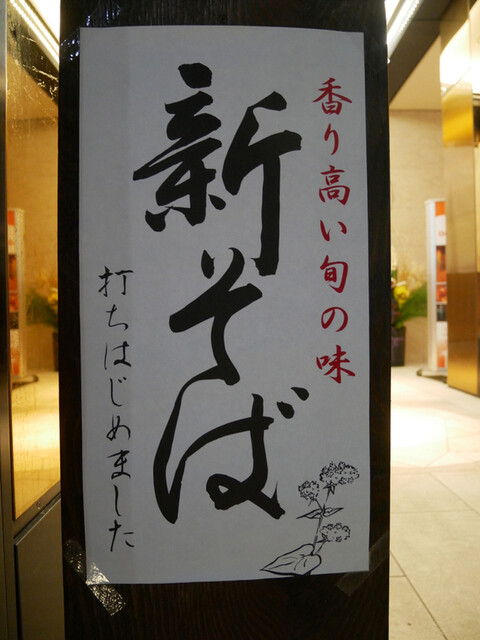 香り高い旬の味
新そば
打ちはじめました